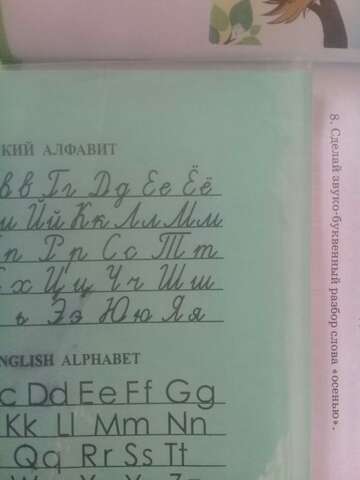 КИЙ АЛФАВИТ
в в Г г Д д Е е Ё ё
и Й й К к Л л М м
п Р р С с Т т
х Ц ц Ч ч Ш ш
ь Э э Ю ю Я я
NGLISH ALPHABET
c Dd Ee Ff Gg
Kk Ll Mm Nn
Qq Rr Ss Tt
8. Сделай звуко-буквенный разбор слова «осенью».